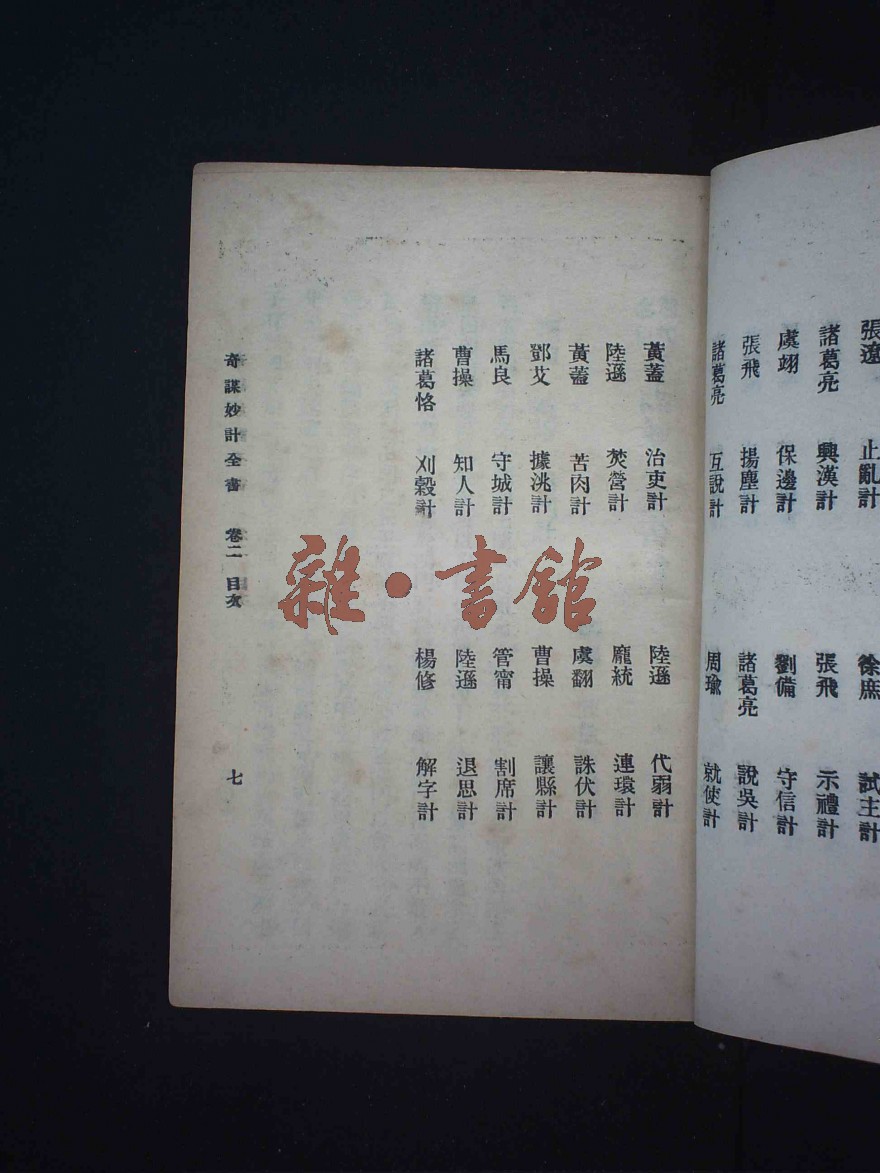 張遼 止亂計
徐庶 試主計
諸葛亮 興漢計
張飛 示禮計
虞翊 保邊計
劉備 守信計
張飛 揚塵計
諸葛亮 說吳計
諸葛亮 互說計
周瑜 就使計
黃蓋 治吏計
陸遜 代弱計
陸遜 焚營計
龐統 連環計
黃蓋 苦肉計
虞翻 誅伏計
鄧艾 據洮計
曹操 讓縣計
馬良 守城計
管甯 割席計
曹操 知人計
陸遜 退思計
諸葛恪 刈穀計
楊修 解字計
奇謀妙計全書 卷二 目次 七
雜·書館